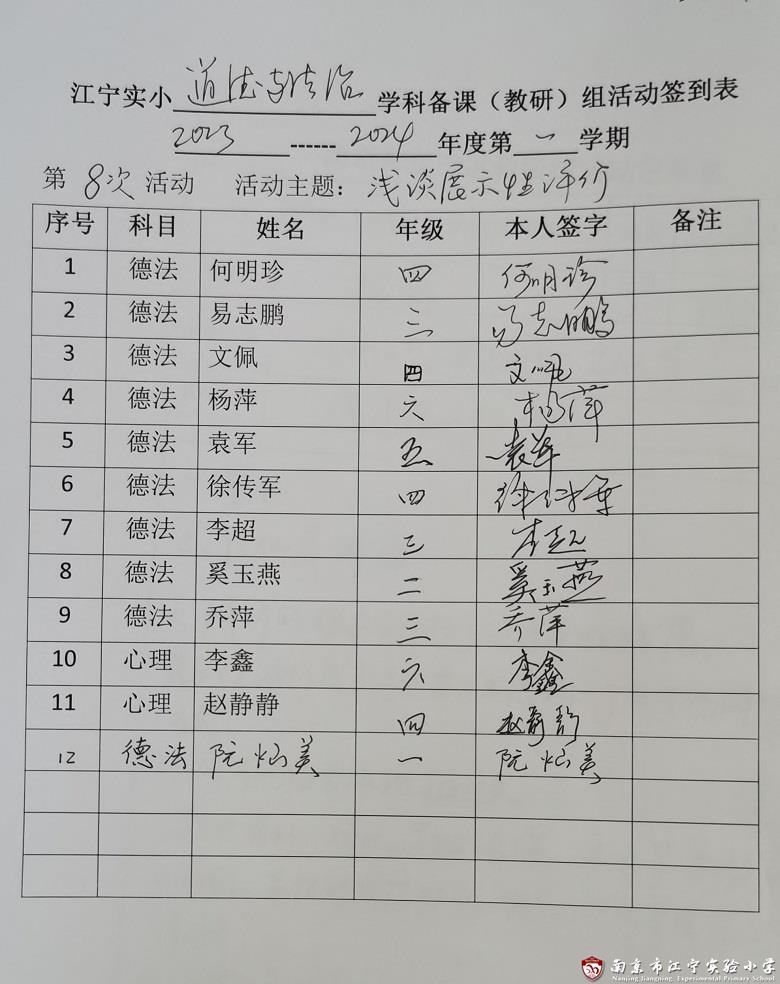 江宁实小道德与法治学科备课（教研）组活动签到表
2023------2024年度第一学期
第8次活动 活动主题：浅谈展示性评价
序号 科目 姓名 年级 本人签字 备注
1 德法 何明珍 四 何明珍
2 德法 易志鹏 三 易志鹏
3 德法 文佩 四 文佩
4 德法 杨萍 六 杨萍
5 德法 袁军 五 袁军
6 德法 徐传军 四 徐传军
7 德法 李超 三 李超
8 德法 奚玉燕 二 奚玉燕
9 德法 乔萍 三 乔萍
10 心理 李鑫 六 李鑫
11 心理 赵静静 四 赵静静
12 德法 阮灿美 一 阮灿美
南京市江宁实验小学
Nanjing Jiangning Experimental Primary School